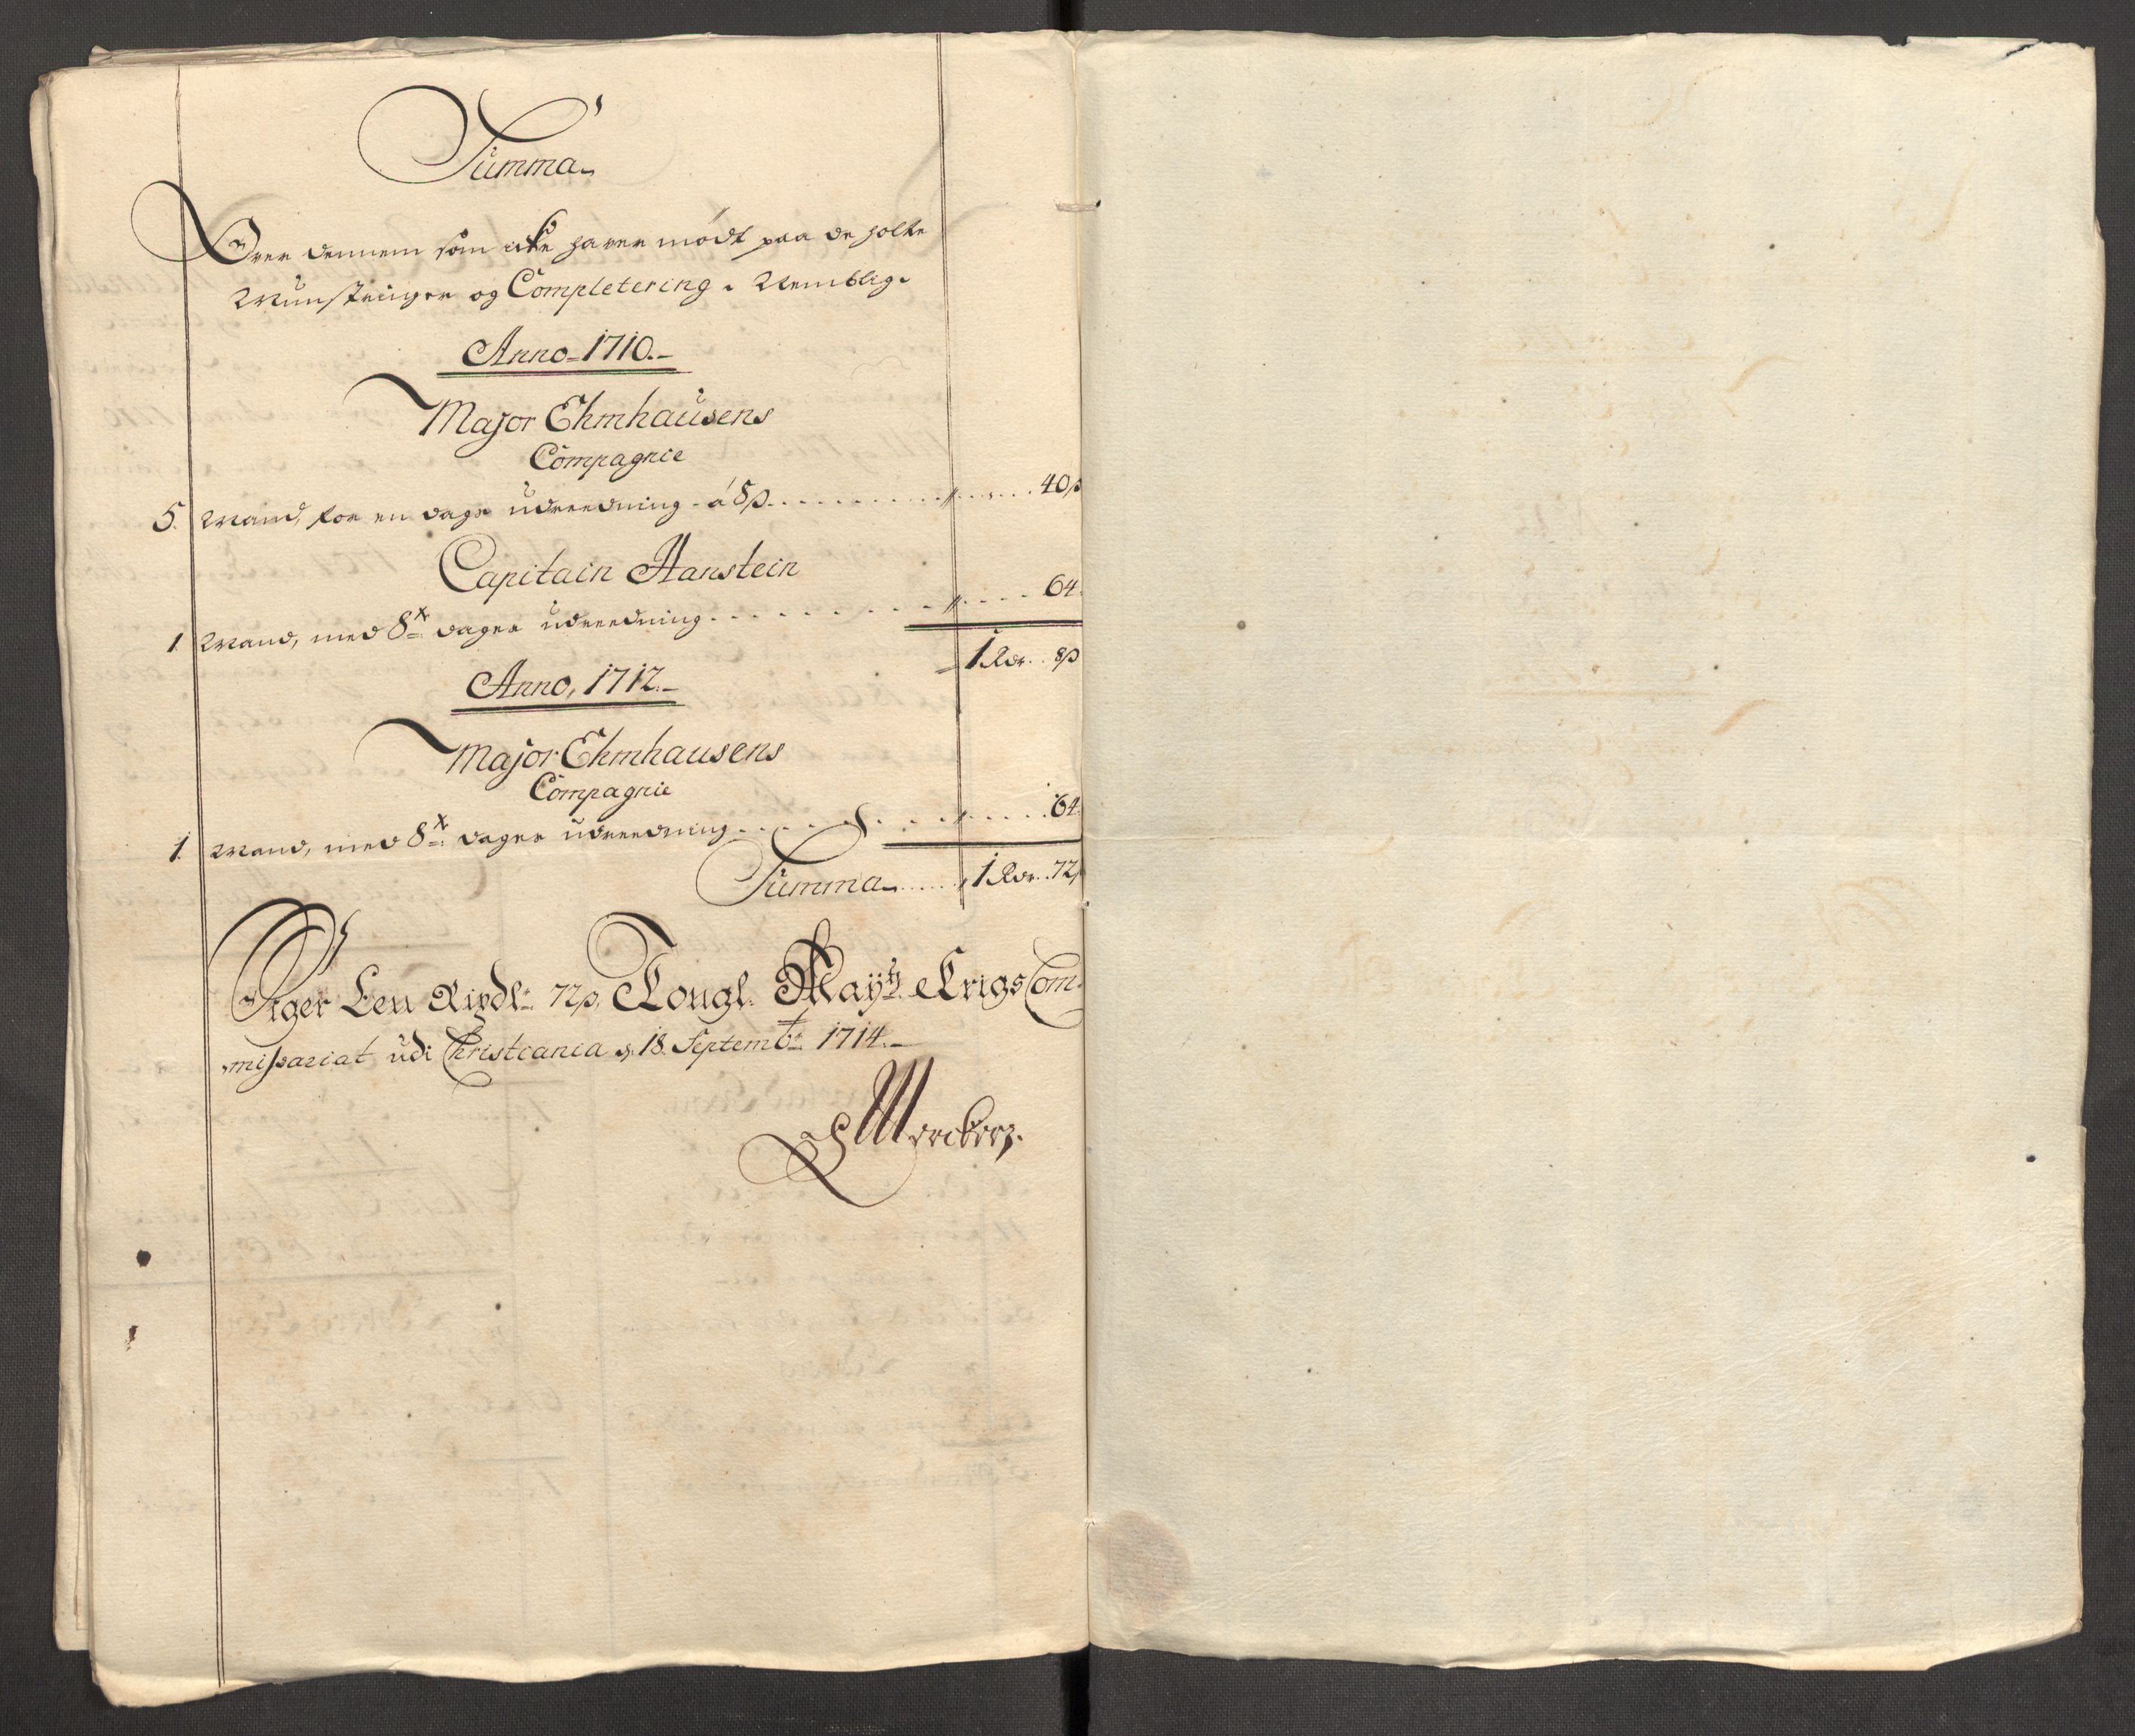 Summa
Over dennem som icke haver mødt paa de holte
Munstringer og Completering. Nemblig.
Anno 1710.
Major Ehmhausens
Compagnie
5. Mand, for en dags udreedning - á 8 ß. 40 ß
Capitain Hanstein
1. Mand, med 8te dages udreedning. 64.
1 Rdr. 8 ß
Anno, 1712.
Major Ehmhausens
Compagnie
1. Mand, med 8te dages udreedning. 64.
Summa 1 Rdr. 72 ß
Siger Een Rixdlr 72 ß. Kongl. Mayts. Krigs Com-
missariat udi Christiania d. 18. Septembr 1714.